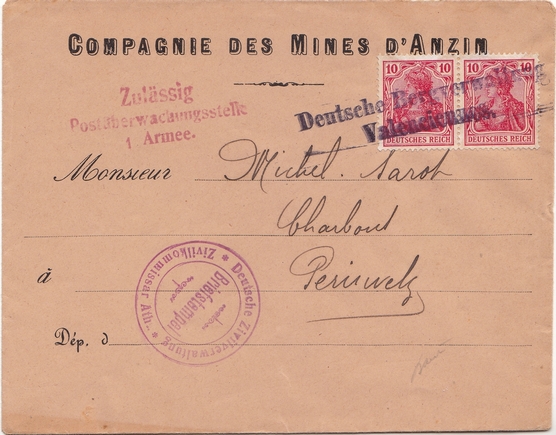 COMPAGNIE DES MINES D'ANZIN
Zulässig
Postüberwachungsstelle
1 Armee.
10 10 10 10
DEUTSCHES REICH DEUTSCHES REICH
Deutsche
Valenciennes.
Monsieur Michel Sarot
Charbons
à Peruwelz
Dép. d
* Deutsche Zivilverwaltung * Zivilkommissar Ath
Briefstempel